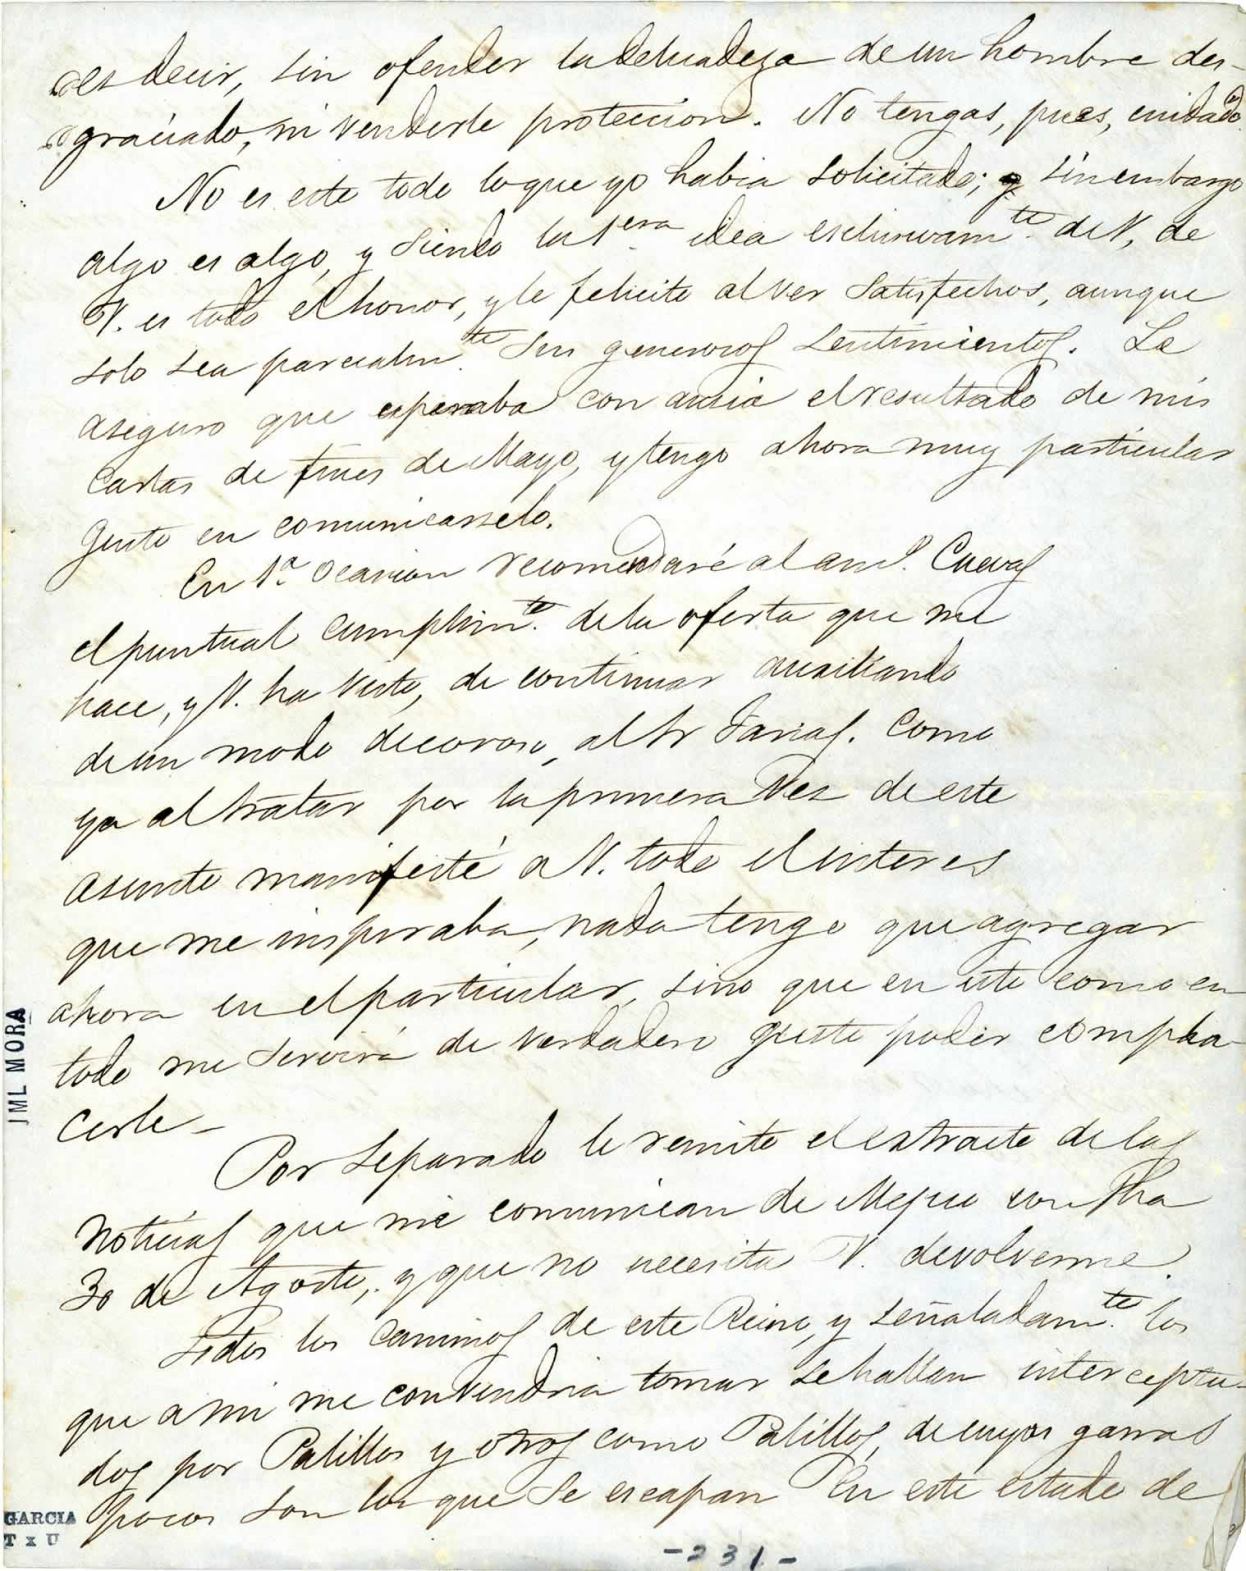 es decir, sin ofender la delicadeza de un hombre des-
graciado, ni venderle proteccion. No tengas, pues, cuidado.
No es este todo lo que yo habia solicitado; y sin embargo
algo es algo, y siendo la 1era idea esclusivamte. de V, de
V. es todo el honor, y le felicito al ver satisfechos, aunque
solo sea parcialmte. sus generosos sentimientos. Le
aseguro que esperaba con ansia el resultado de mis
cartas de fines de Mayo, y tengo ahora muy particular
gusto en comunicarselo.
En 1a. ocasion recomendaré al am.o Cuevas
el puntual cumplimto. de la oferta que me
hace, y V. ha visto, de continuar auxiliando
de un modo decoroso, al Sr Farias. Como
ya al tratar por la primera vez de este
asunto manifesté a V. todo el interes
que me inspiraba, nada tengo que agregar
ahora en el particular, sino que en este como en
todo me servirá de verdadero gusto poder compla-
cerle-
Por separado le remito el estracto de las
noticias que me comunican de Mejico con fha
30 de Agosto, y que no necesita V. devolverme.
Todos los caminos de este Reino, y señaladamte. los
que a mi me convendria tomar se hallan intercepta-
dos por Palillos y otros como Palillos, de cuyas garras
pocos son los que se escapan En este estado de
JML MORA
GARCIA
T x U
-231-